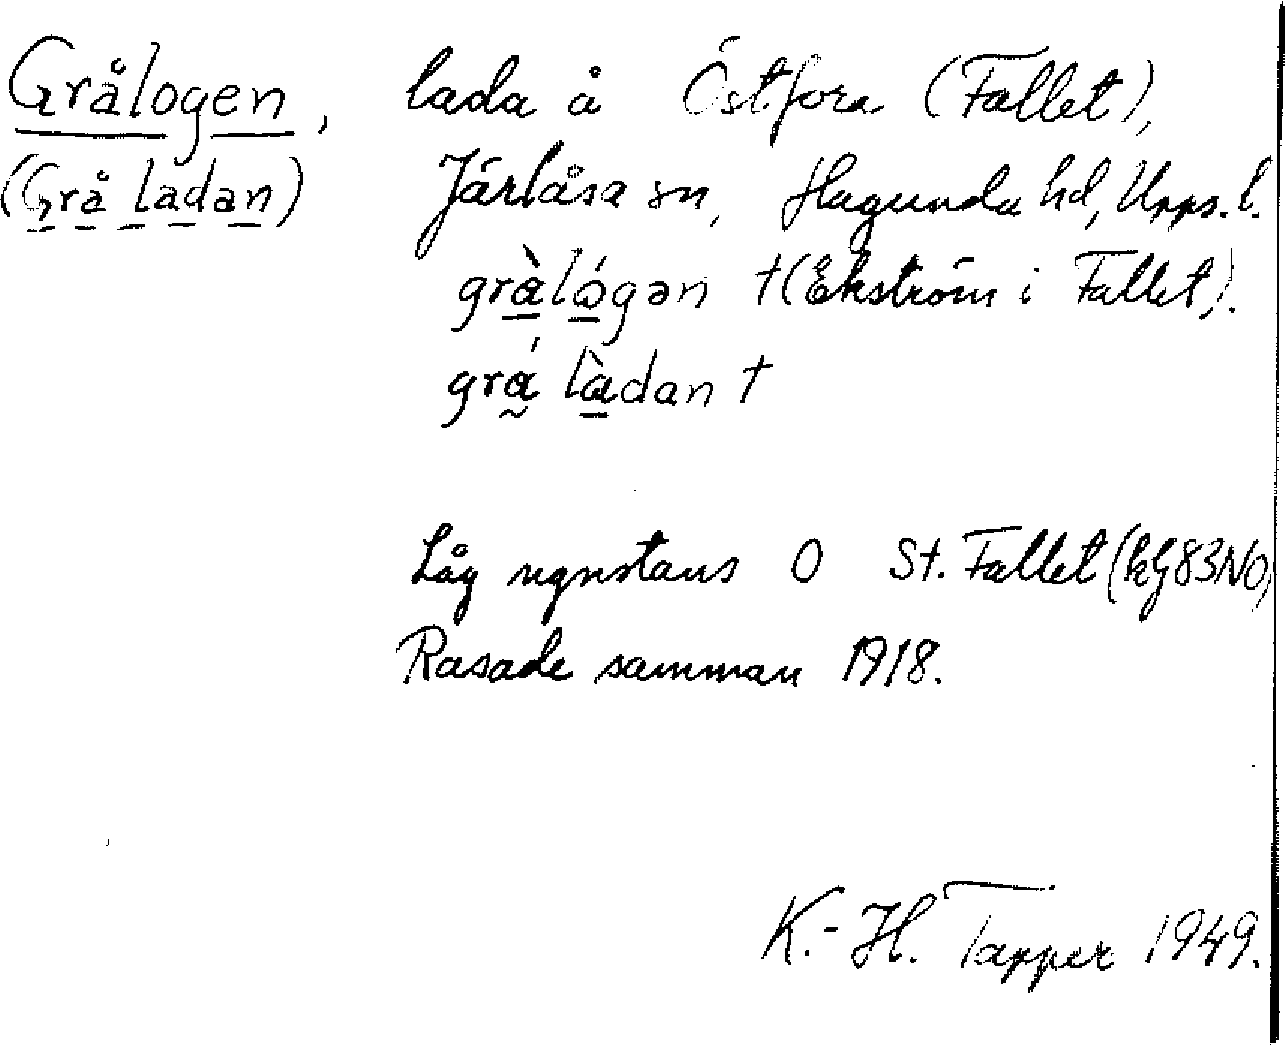 Grålogen, lada å Östfora (Fallet),
(Grå ladan) Järlåsa sn, Hagunda hd, Upps. l.
grà̱ló̱gən †(Ekström i Fallet).
grá̰ là̱dan †
Låg ngnstans O St. Fallet (kg83NO)
Rasade samman 1918.
K.-H. Tapper 1949.